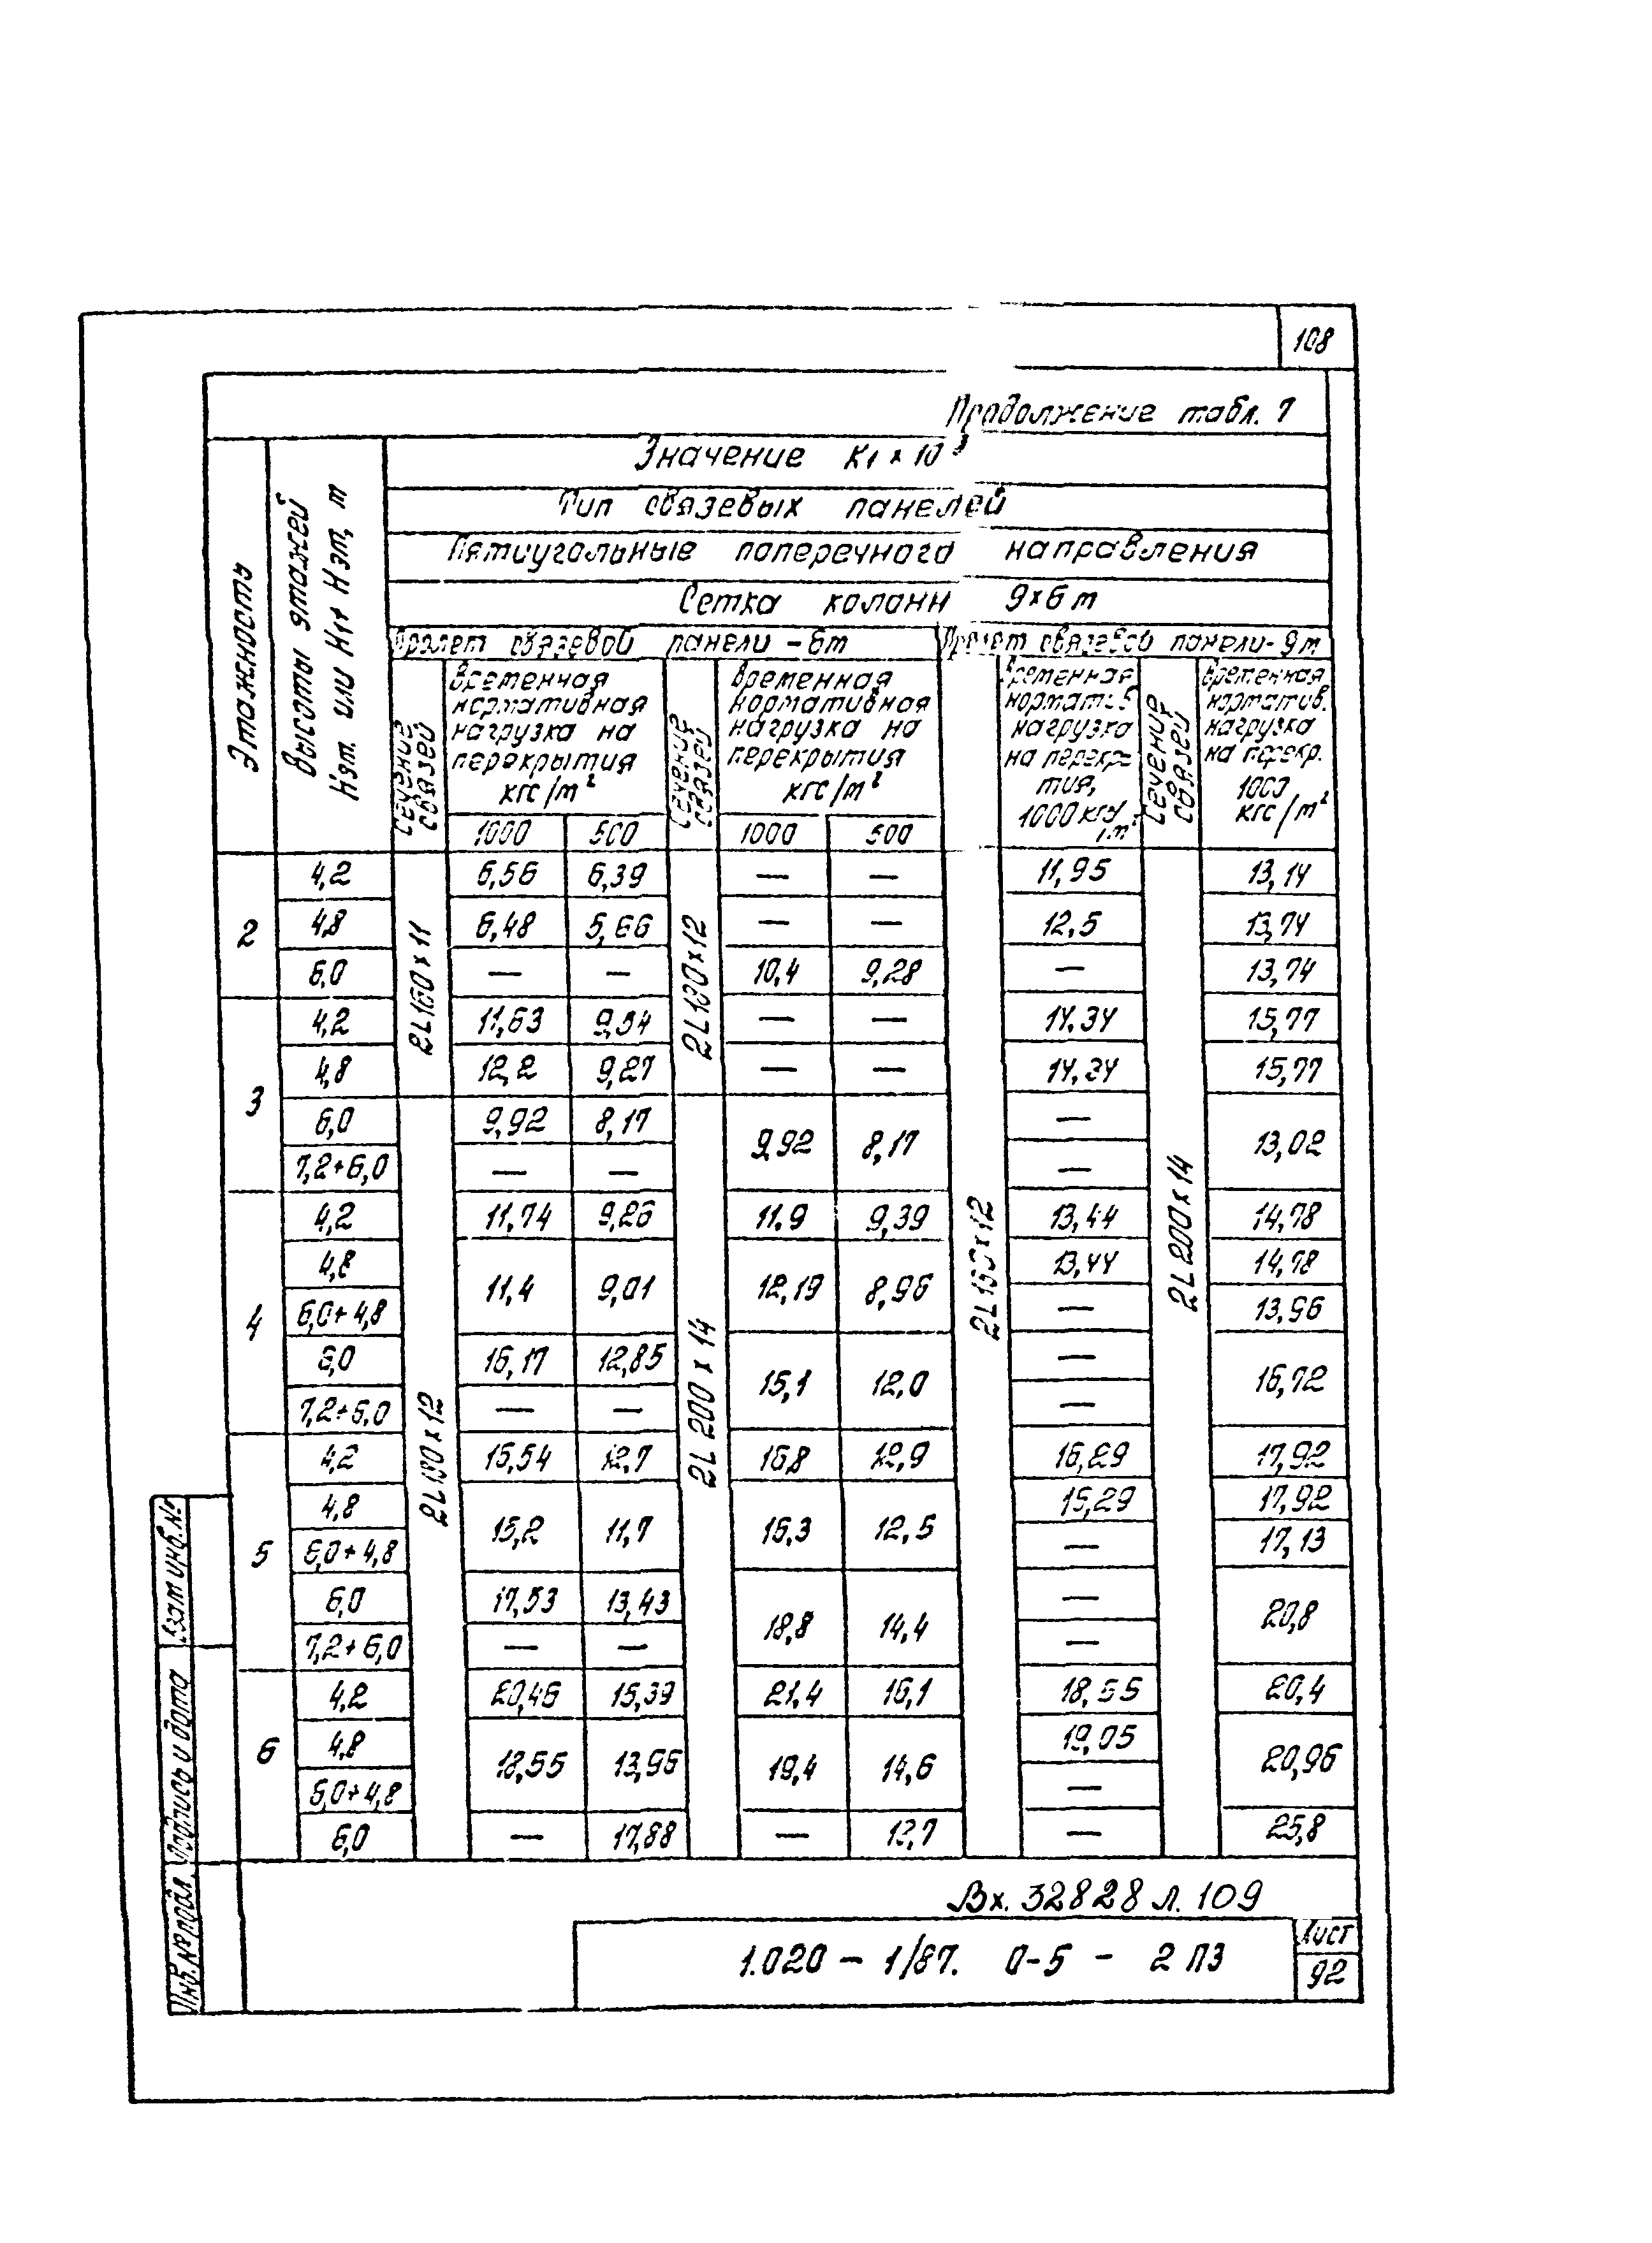 108
Продолжение табл. 7
Этажность
Высоты этажей
Нэт. или Н1+ Нэт, м
Значение К1 × 10³
Тип связевых панелей
Пятиугольные поперечного направления
Сетка колонн 9×6 м
Пролет связевой панели - 6м
Пролет связевой панели - 9м
Сечение связей
Временная нормативная нагрузка на перекрытия кгс/м²
Сечение связей
Временная нормативная нагрузка на перекрытия кгс/м²
Временная норматив нагрузка на перекрытия, 1000 кгс/м²
Сечение связей
Временная норматив. нагрузка на перекр. 1000 кгс/м²
1000 500 1000 500
2L160×11
2L180×12
2L180×12
2L 200 × 14
2L200×14
2
4,2 6,56 6,39 — — 11,95 13,14
4,8 6,48 5,66 — — 12,5 13,74
6,0 — — 10,4 9,28 — 13,74
3
4,2 11,63 9,54 — — 14,34 15,77
4,8 12,2 9,27 — — 14,34 15,77
6,0 9,92 8,17 9,92 8,17 — 13,02
7,2+6,0 — — —
4
4,2 11,74 9,26 11,9 9,39 13,44 14,78
4,8 11,4 9,01 12,19 8,96 13,44 14,78
6,0+4,8 — 13,96
6,0 16,17 12,85 15,1 12,0 — 16,72
7,2+6,0 — — —
5
4,2 15,54 12,7 16,8 12,9 16,29 17,92
4,8 15,2 11,7 16,3 12,5 15,29 17,92
6,0+4,8 — 17,13
6,0 17,53 13,43 18,8 14,4 — 20,8
7,2+6,0 — — —
6
4,2 20,46 15,39 21,4 16,1 18,55 20,4
4,8 18,55 13,96 19,4 14,6 19,05 20,96
6,0+4,8 —
6,0 — 17,88 — — 25,8
Взам инв.№
Подпись и дата
Инв.№ подл
Вх. 32828 л. 109
1.020 - 1/87. 0-5 - 2 ПЗ
Лист
92